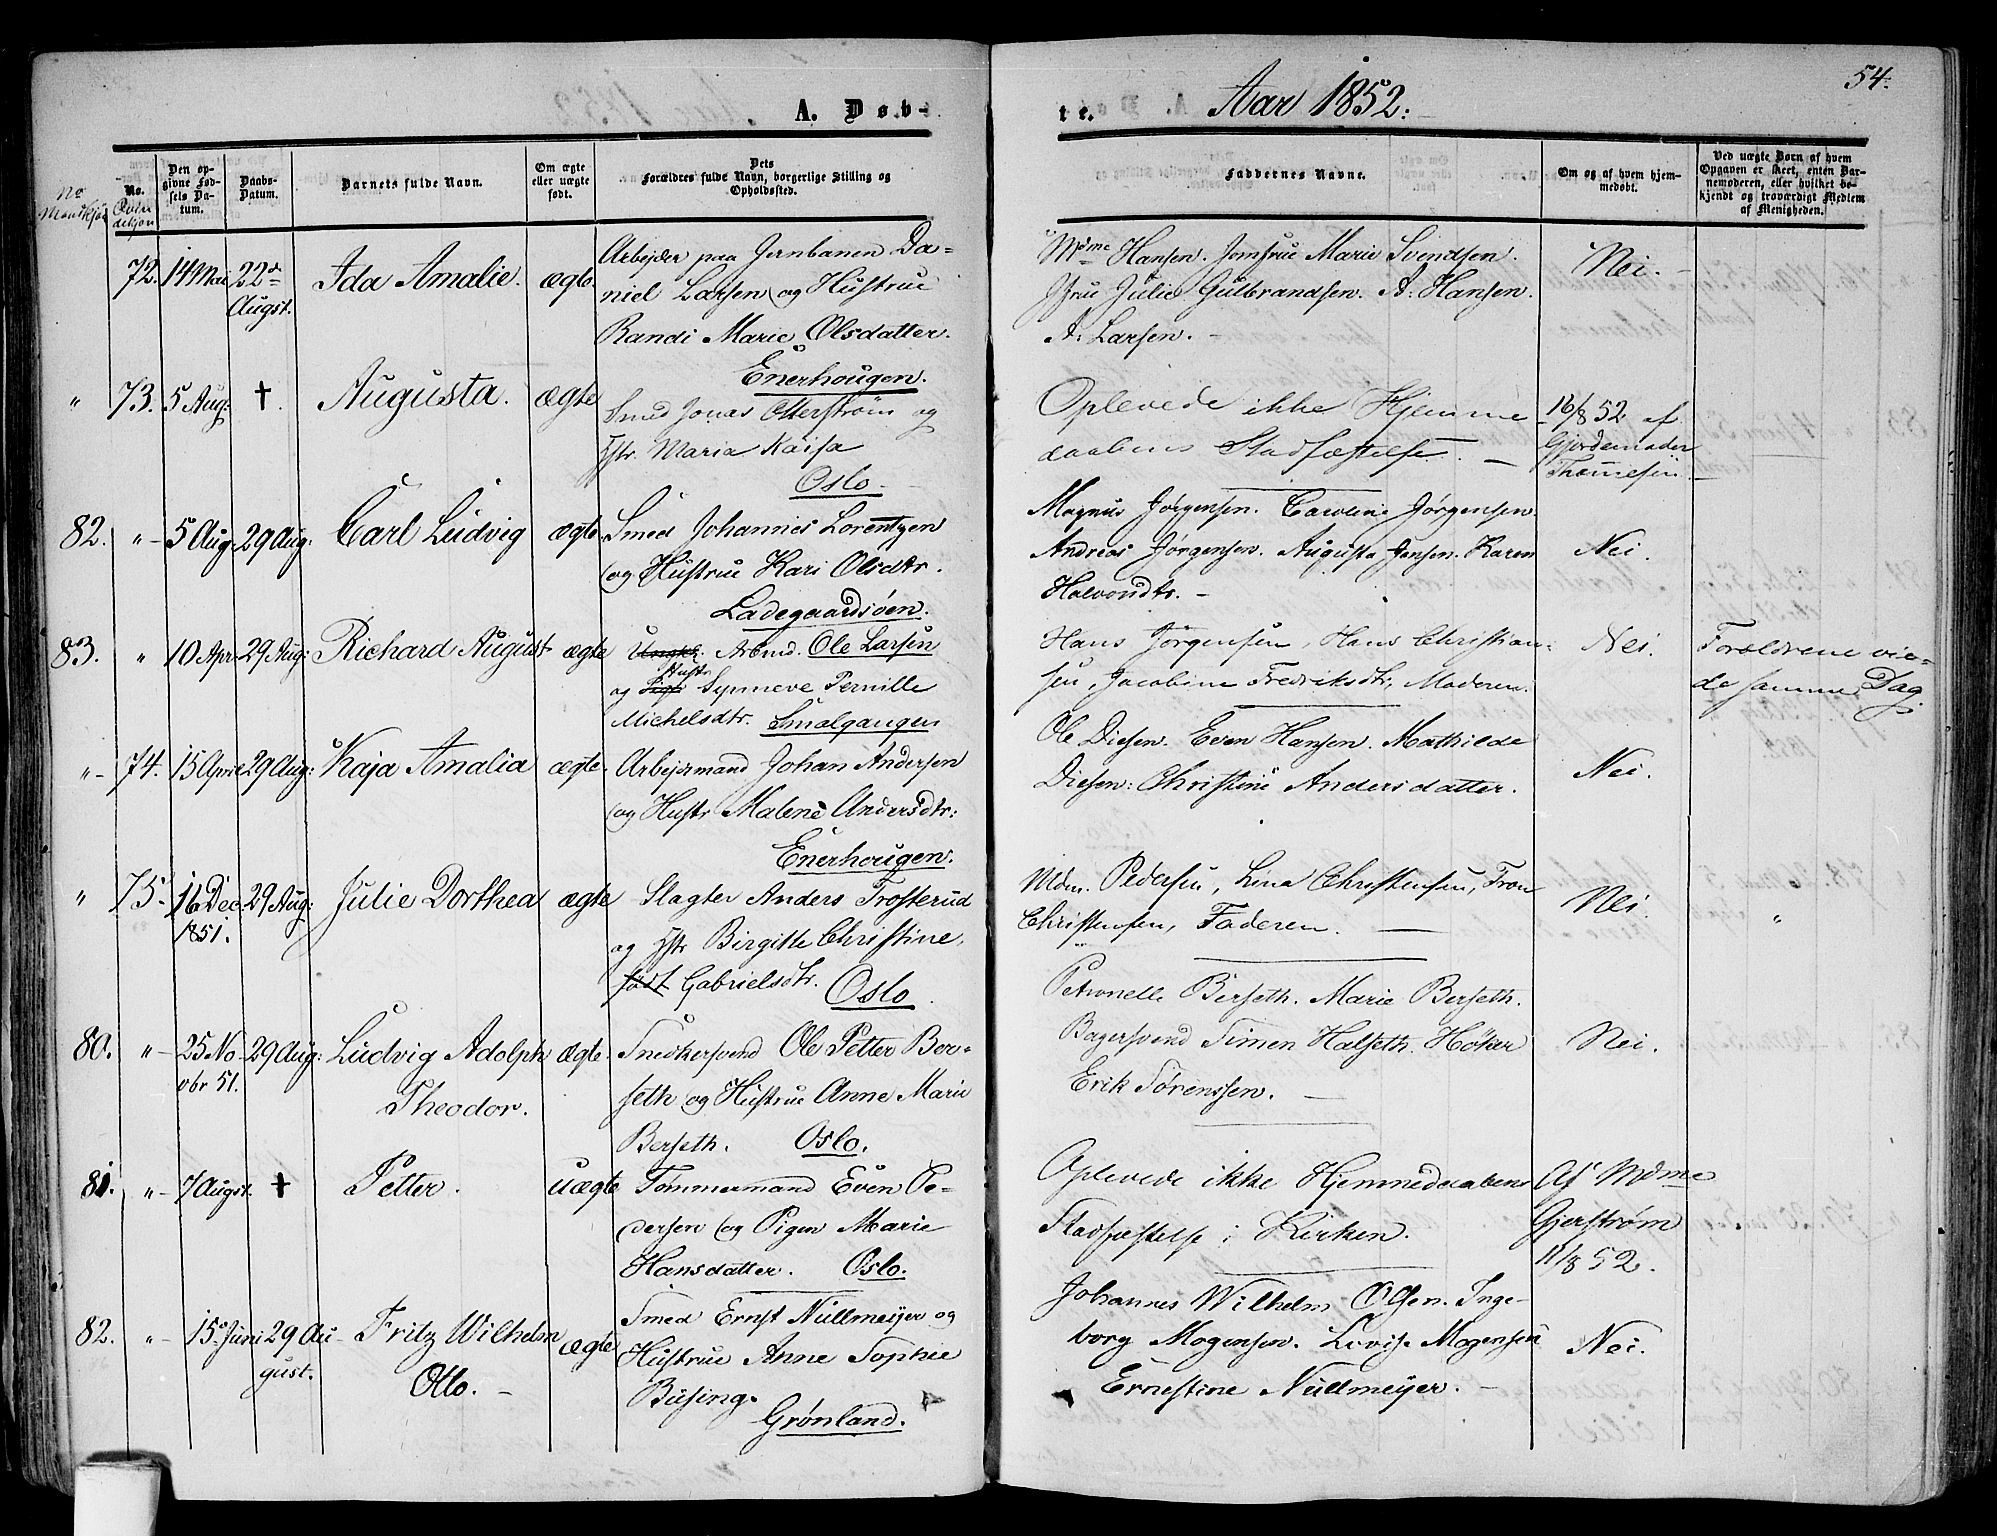 A. Døb-
No. Mandkjøn
No. Qvindekjøn
Den opgivne Fødsels Datum.
Daabs-Datum.
Barnets fulde Navn.
Om ægte eller uægte født.
Dets Forældres fulde Navn, borgerlige Stilling og Opholdssted.
72. 14 Mai 22de Augst. Ida Amalie. ægte.
Arbejder paa Jernbanen Da-
niel Larsen og Hustrue
Randi Marie Olsdatter.
Enerhougen.
" 73. 5 Aug: †. Augusta. ægte
Smed Jonas Otterstrøm og
Hstr. Maria Kaisa
Oslo.
82. " 5 Aug 29 Aug: Carl Ludvig ægte.
Smed Johannes Lorentzen
og Hustrue Kari Olsdtr.
Ladegaardsøen.
83. " 10 Apr 29 Aug: Richard August ægte
Ungk: Arbmd. Ole Larsen
Hustr
og Pige Synneve Pernille
Michelsdtr. Smalgangen
" 74. 15 April 29 Aug: Kaja Amalia ægte.
Arbejdermand Johan Andersen
og Hustr Malene Andersdtr:
Enerhougen.
" 75. 16 Dec 1851. 29 Aug: Julie Dorthea ægte
Slagter Anders Trosterud
og Hstr Birgitte Christine,
født Gabrielsdtr. Oslo.
80. " 25 No vbr 51. 29 Aug: Ludvig Adolph Theodor. ægte.
Snedkersvend Ole Petter Ber-
seth og Hustrue Anne Marie
Berseth. Oslo.
81. " 7 Augst. † Petter. uægte
Tømmermand Even Pe-
dersen og Pigen Marie
Hansdatter. Oslo.
82. " 15. Juni 29 Au-gust. Fritz Wilhelm Otto. ægte
Smed Ernst Nüllmeijer og
Hustrue Anne Sophie
Büsing.
Grønland.
te.
Aar 1852.
54.
Faddernes Navne.
Om og af hvem hjemmedøbt.
Ved uægte Børn af hvem Opgaven er skeet, enten Barnemoderen, eller hvilket bekjendt og troværdigt Medlem af Menigheden.
Mdme Hansen. Jomfrue Marie Svendsen.
Jfrue Julie Gulbrandsen. A. Hansen.
A. Larsen.
Nei.
Oplevede ikke Hjemme
daabens Stadfæstelse.
16/8 52 af
Gjordemoder
Thomesen.
Magnus Jørgensen. Caroline Jørgensen.
Andreas Jørgensen. Augusta Jensen. Karen
Halvorsdtr.
Nei.
Hans Jørgensen, Hans Christian-
sen, Jacobine Fredriksdtr, Moderen.
Nei.
Forældrene vie-
de samme Dag.
Ole Diesen. Even Hansen. Mathilde
Diesen. Christine Andersdatter.
Nei.
Mdm. Pedersen, Lina Christensen, Tron
Christensen, Faderen.
Nei. "
Petronelle Berseth. Marie Berseth.
Bagersvend Simen Halseth. Høker
Erik Sørenssen.
Nei.
Oplevede ikke Hjemmedaabens
Stadfæstelse i Kirken.
Af Mdme
Gjerstrøm
11/8 52.
Johannes Wilhelm Olsen. Inge-
borg Mogensen. Lovise Mogensen
Ernestine Nüllmeijer.
Nei.